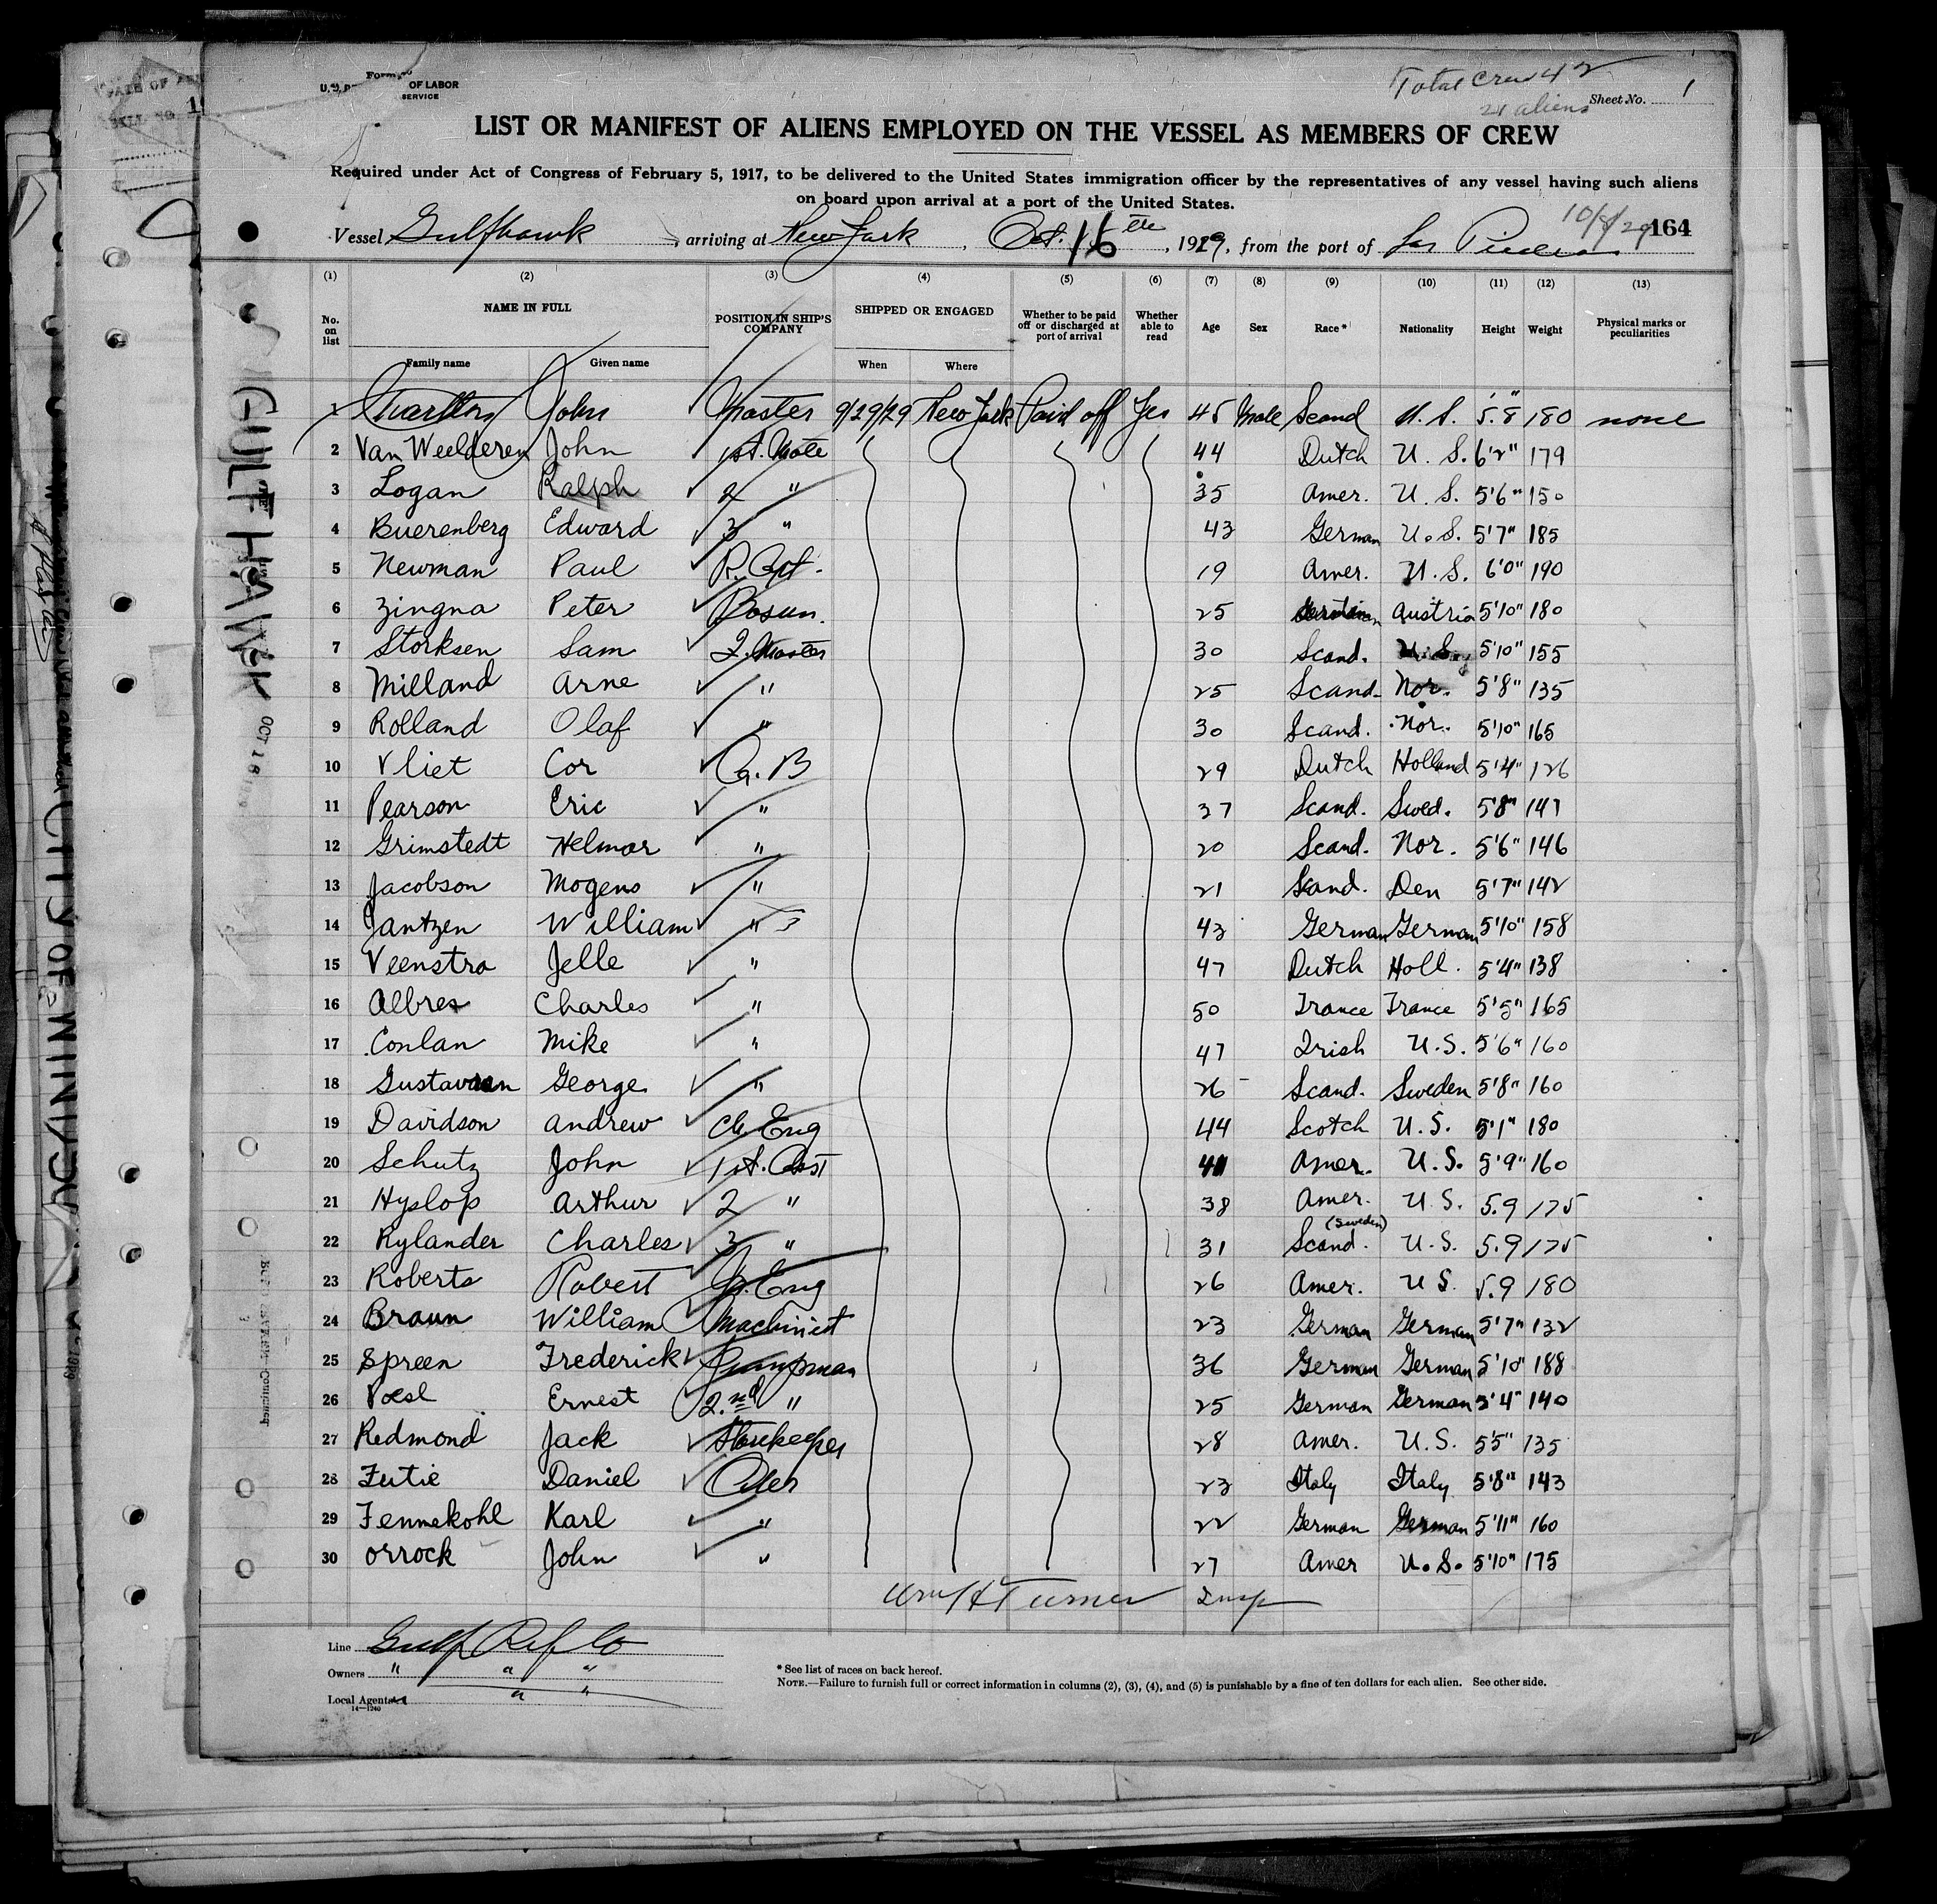 Total Crew 42
21 aliens
Form
U. S. OF LABOR
SERVICE
Sheet No. 1
LIST OR MANIFEST OF ALIENS EMPLOYED ON THE VESSEL AS MEMBERS OF CREW
Required under Act of Congress of February 5, 1917, to be delivered to the United States immigration officer by the representatives of any vessel having such aliens
on board upon arrival at a port of the United States.
10/8/29 164
Vessel Gulfhawk, arriving at New York, Oct. 16th, 1929, from the port of Las Piedras
(1) (2) (3) (4) (5) (6) (7) (8) (9) (10) (11) (12) (13)
No. on list NAME IN FULL POSITION IN SHIP'S COMPANY SHIPPED OR ENGAGED Whether to be paid off or discharged at port of arrival Whether able to read Age Sex Race* Nationality Height Weight Physical marks or peculiarities
Family name Given name When Where
1 John Master 9/29/29 New York Paid off Yes 45 Male Scand U. S. 5'8" 180 none
2 Van Weelderen John 1st. Mate 44 Dutch U. S. 6'2" 179
3 Logan Ralph 2 " 35 Amer. U. S. 5'6" 150
4 Buerenberg Edward 3 " 43 German U. S. 5'7" 185
5 Newman Paul R. Opt. 19 Amer. U. S. 6'0" 190
6 Zingna Peter Bosun. 25 Austria 5'10" 180
7 Storksen Sam Q. Master 30 Scand. 5'10" 155
8 Milland Arne " 25 Scand. Nor. 5'8" 135
9 Rolland Olaf " 30 Scand. Nor. 5'10" 165
10 Vliet Cor A. B 29 Dutch Holland 5'4" 126
11 Pearson Eric " 37 Scand. Swed. 5'8" 147
12 Grimstedt Helmar " 20 Scand. Nor. 5'6" 146
13 Jacobson Mogens " 21 Scand. Den 5'7" 142
14 Jantzen William " 43 German German 5'10" 158
15 Veenstra Jelle " 47 Dutch Holl. 5'4" 138
16 Albres Charles " 50 France France 5'5" 165
17 Conlan Mike " 47 Irish U.S. 5'6" 160
18 Gustavsen George " 26 Scand. Sweden 5'8" 160
19 Davidson Andrew Ch. Eng 44 Scotch U.S. 5'1" 180
20 Schutz John 1st. Asst Amer. U.S. 5'9" 160
21 Hyslop Arthur 2 " 38 Amer. U S. 5.9 175
22 Rylander Charles 3 " 31 Scand. (Sweden) U.S. 5.9 175
23 Roberts Robert Jr. Eng 26 Amer. U S. 5.9 180
24 Braun William Machinist 23 German German 5'7" 132
25 Spreen Frederick Pumpman 36 German German 5'10" 188
26 Poesl Ernest 2.nd " 25 German German 5'4" 140
27 Redmond Jack Storekeeper 28 Amer. U.S. 5'5" 135
28 Futie Daniel Oiler 23 Italy Italy 5'8" 143
29 Fennekohl Karl " 22 German German 5'11" 160
30 Orrock John " 27 Amer U.S. 5'10" 175
Wm H Turner Insp
Line Gulf Ref Co
Owners " " "
Local Agents " " "
14—1240
* See list of races on back hereof.
NOTE.—Failure to furnish full or correct information in columns (2), (3), (4), and (5) is punishable by a fine of ten dollars for each alien. See other side.
GULF HAWK